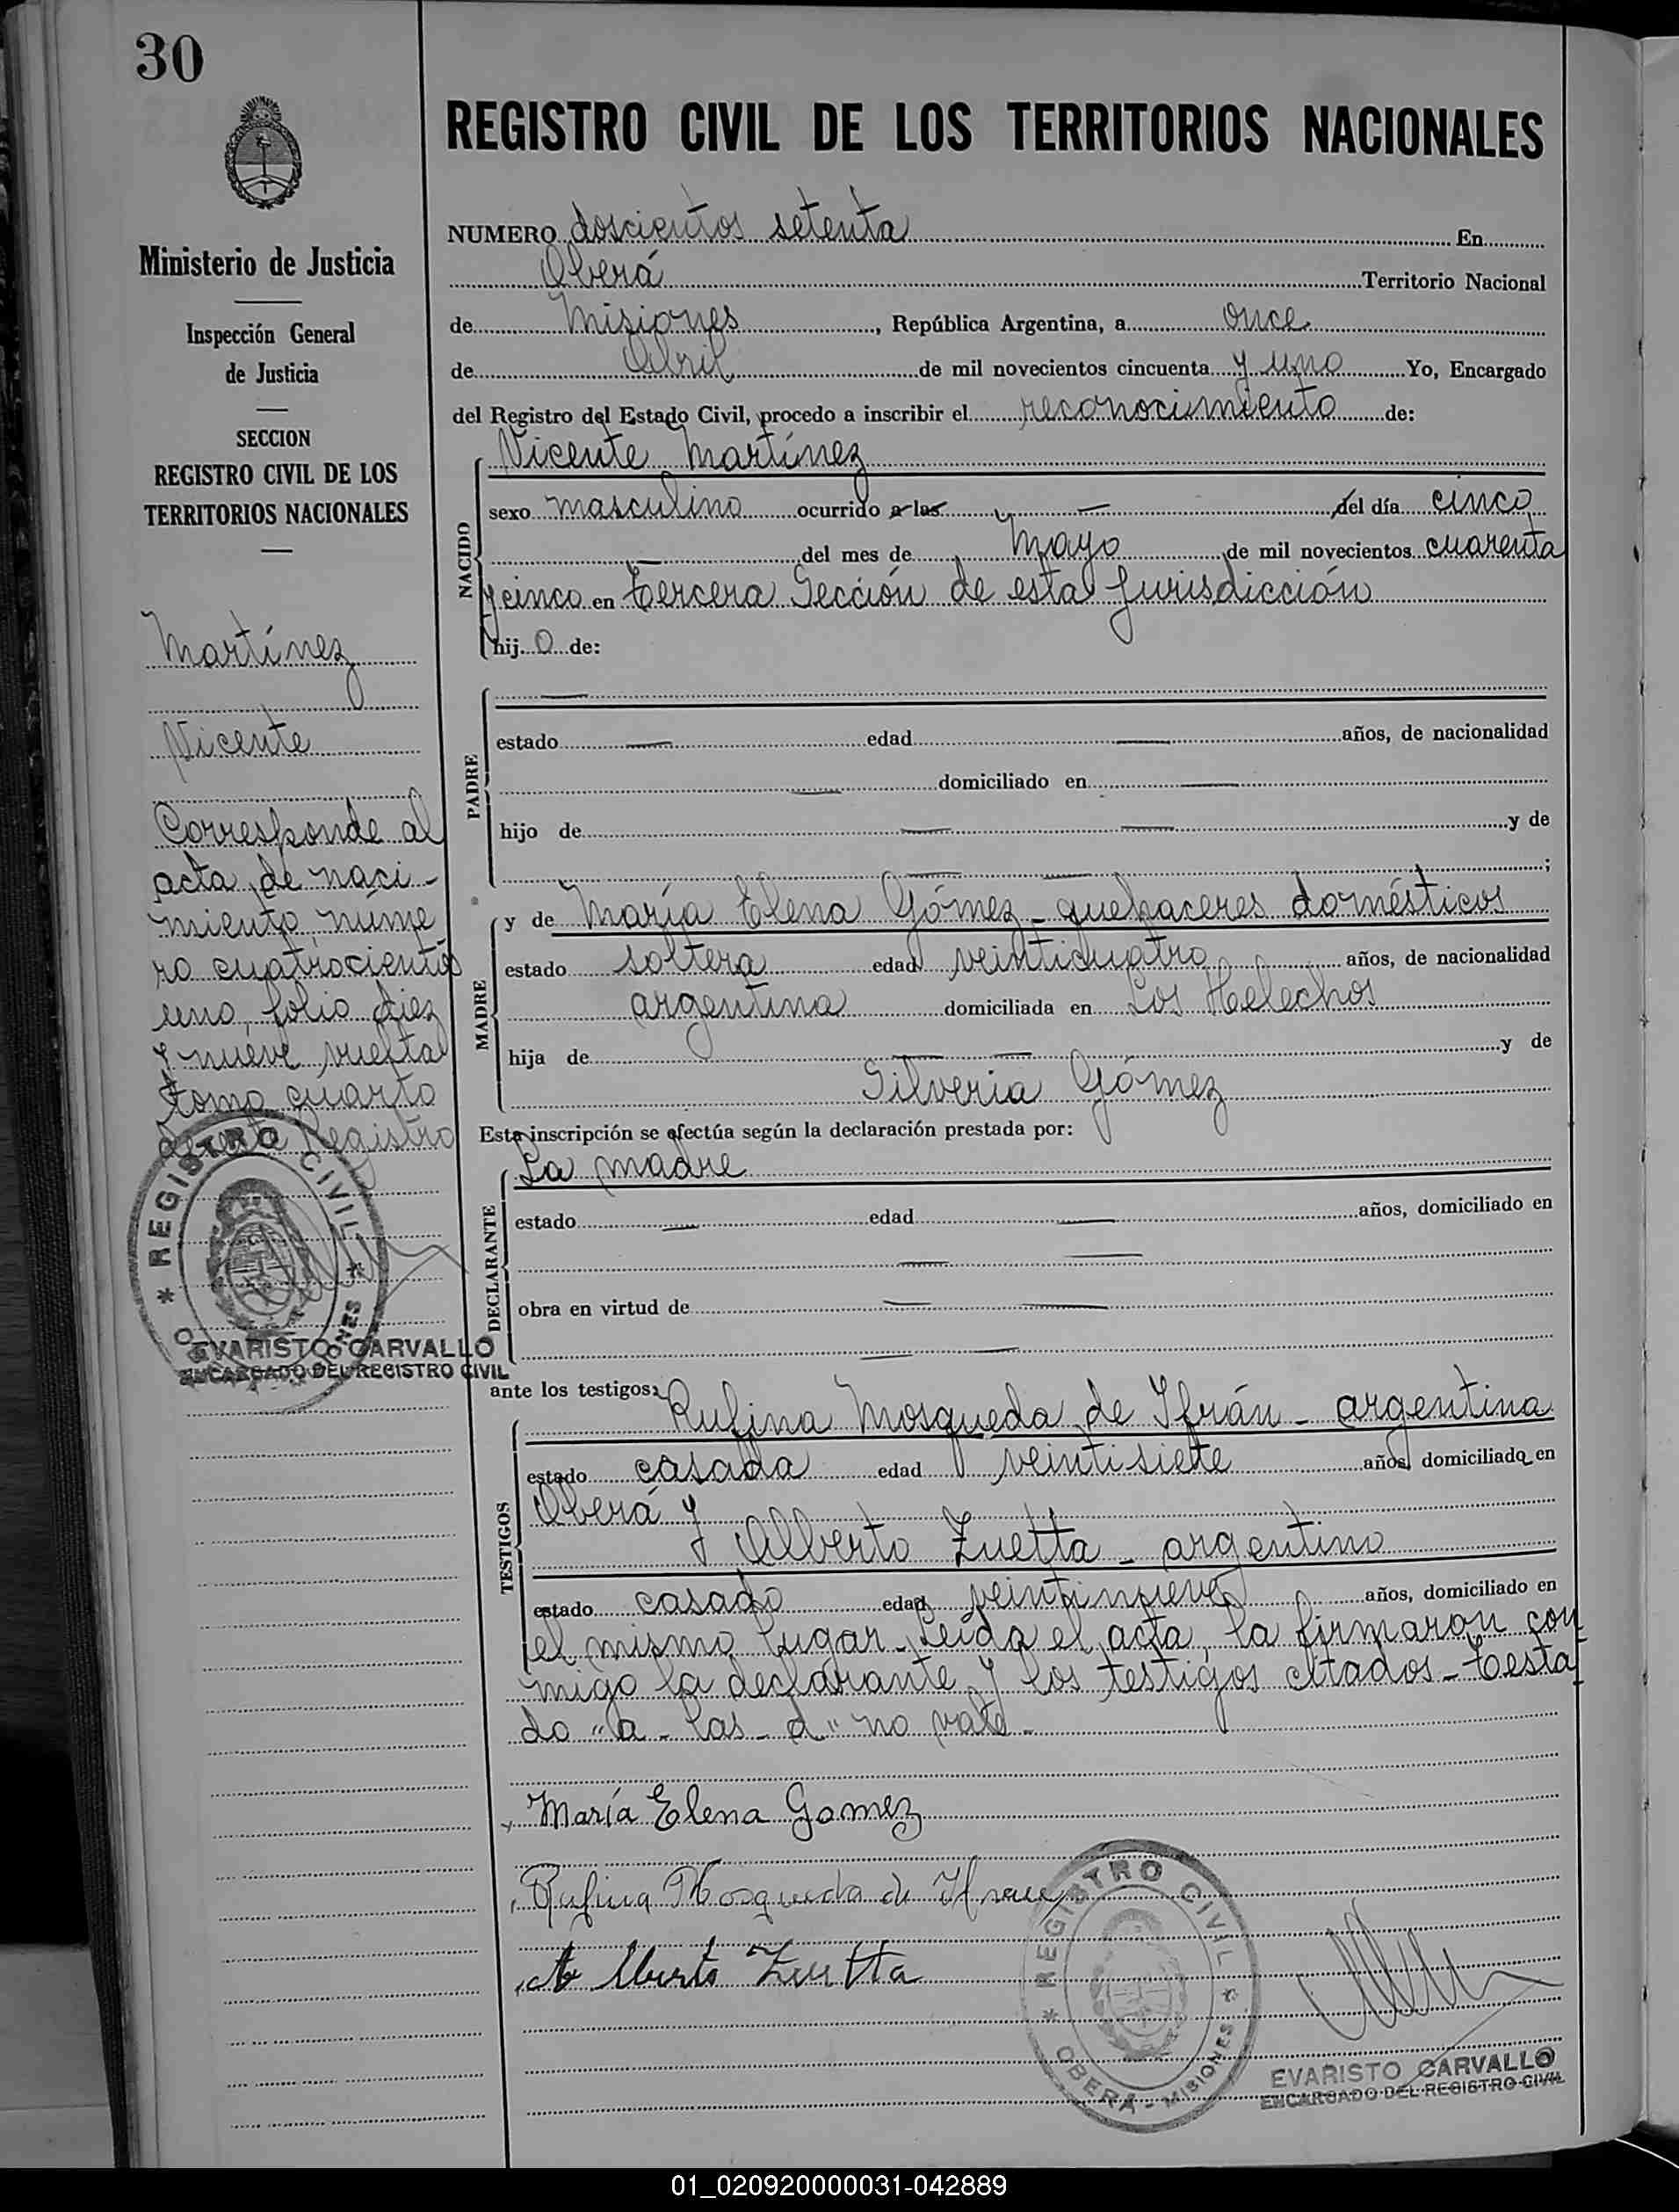 30
Ministerio de Justicia
Inspección General
de Justicia
SECCION
REGISTRO CIVIL DE LOS
TERRITORIOS NACIONALES
Martínez
Vicente
Corresponde al
acta de naci-
miento núme
ro cuatrocientos
uno, folio diez
y nueve vuelta
tomo cuarto
de este Registro
* REGISTRO CIVIL *
EVARISTO CARVALLO
ENCARGADO DEL REGISTRO CIVIL
REGISTRO CIVIL DE LOS TERRITORIOS NACIONALES
NUMERO doscientos setenta En
Oberá Territorio Nacional
de Misiones, República Argentina, a once
de Abril de mil novecientos cincuenta y uno Yo, Encargado
del Registro del Estado Civil, procedo a inscribir el reconocimiento de:
NACIDO
Vicente Martínez
sexo masculino ocurrido a las — del día cinco
— del mes de Mayo de mil novecientos cuarenta
y cinco en Tercera Sección de esta Jurisdicción
hijo de:
PADRE
—
estado — edad — años, de nacionalidad
— domiciliado en —
hijo de — — y de
— — ;
MADRE
y de María Elena Gómez - quehaceres domésticos
estado soltera edad veinticuatro años, de nacionalidad
argentina domiciliada en Los Helechos
hija de — — y de
Silveria Gómez
Esta inscripción se efectúa según la declaración prestada por:
DECLARANTE
La madre
estado — edad — años, domiciliado en
— —
obra en virtud de — —
— —
ante los testigos:
TESTIGOS
Rufina Mosqueda de Ifrán - argentina
estado casada edad veintisiete años, domiciliado en
Oberá y
Alberto Zuetta - argentino
estado casado edad veintinueve años, domiciliado en
el mismo lugar - Leída el acta, la firmaron con
migo la declarante y los testigos citados - Testa
do "a - las - d" no vale -
María Elena Gomez
Rufina Mosqueda de Ifran
Alberto Zuetta
* REGISTRO CIVIL *
OBERÁ - MISIONES
EVARISTO CARVALLO
ENCARGADO DEL REGISTRO CIVIL
01_020920000031-042889